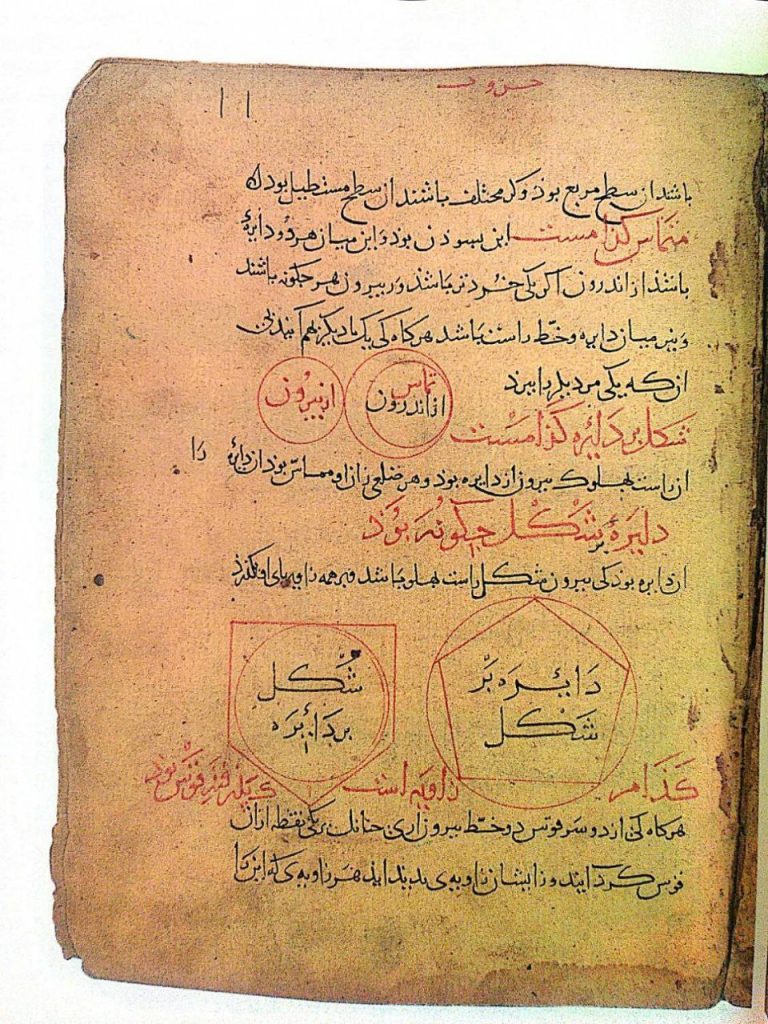 ۱۱
باشند ان سطح مربع بوذ و کر مختلف باشند ان سطح مستطیل بوذ
متماس کذامست این بسوذن بوذ و این میان هر دو دایرهٔ
باشذ از اندرون اکر یکی خردتر باشذ و ربیرون هر جکونه باشند
و نیز میان دایره و خط راست باشد هرکاه کی یک با دیکر بهم آیند بی
ان که یکی مر دیکر را ببرذ
تماس از اندرون
از بیرون
شکل بر دایره کذامست
ان راست بهلو ک بیرون از دایره بوذ و هر ضلعی زان او مماس بوذ از دایره
را
دایره بر شکل چکونه بوذ
ان دایره بوذ کی بیرون شکل راست بهلو باشد و بر همه زاویهای او کذرذ
دایره بر شکل
شکل بر دایره
کذامر زاویه است کی بذیرفته قوس بوذ
هرکاه کی از دو سر قوس دو خط بیرون اری جنانک بر یکی نقطه ازان
قوس کرد آیند و زایشان زاویه‌ی بدید ایذ هر زاویه‌ی که این را